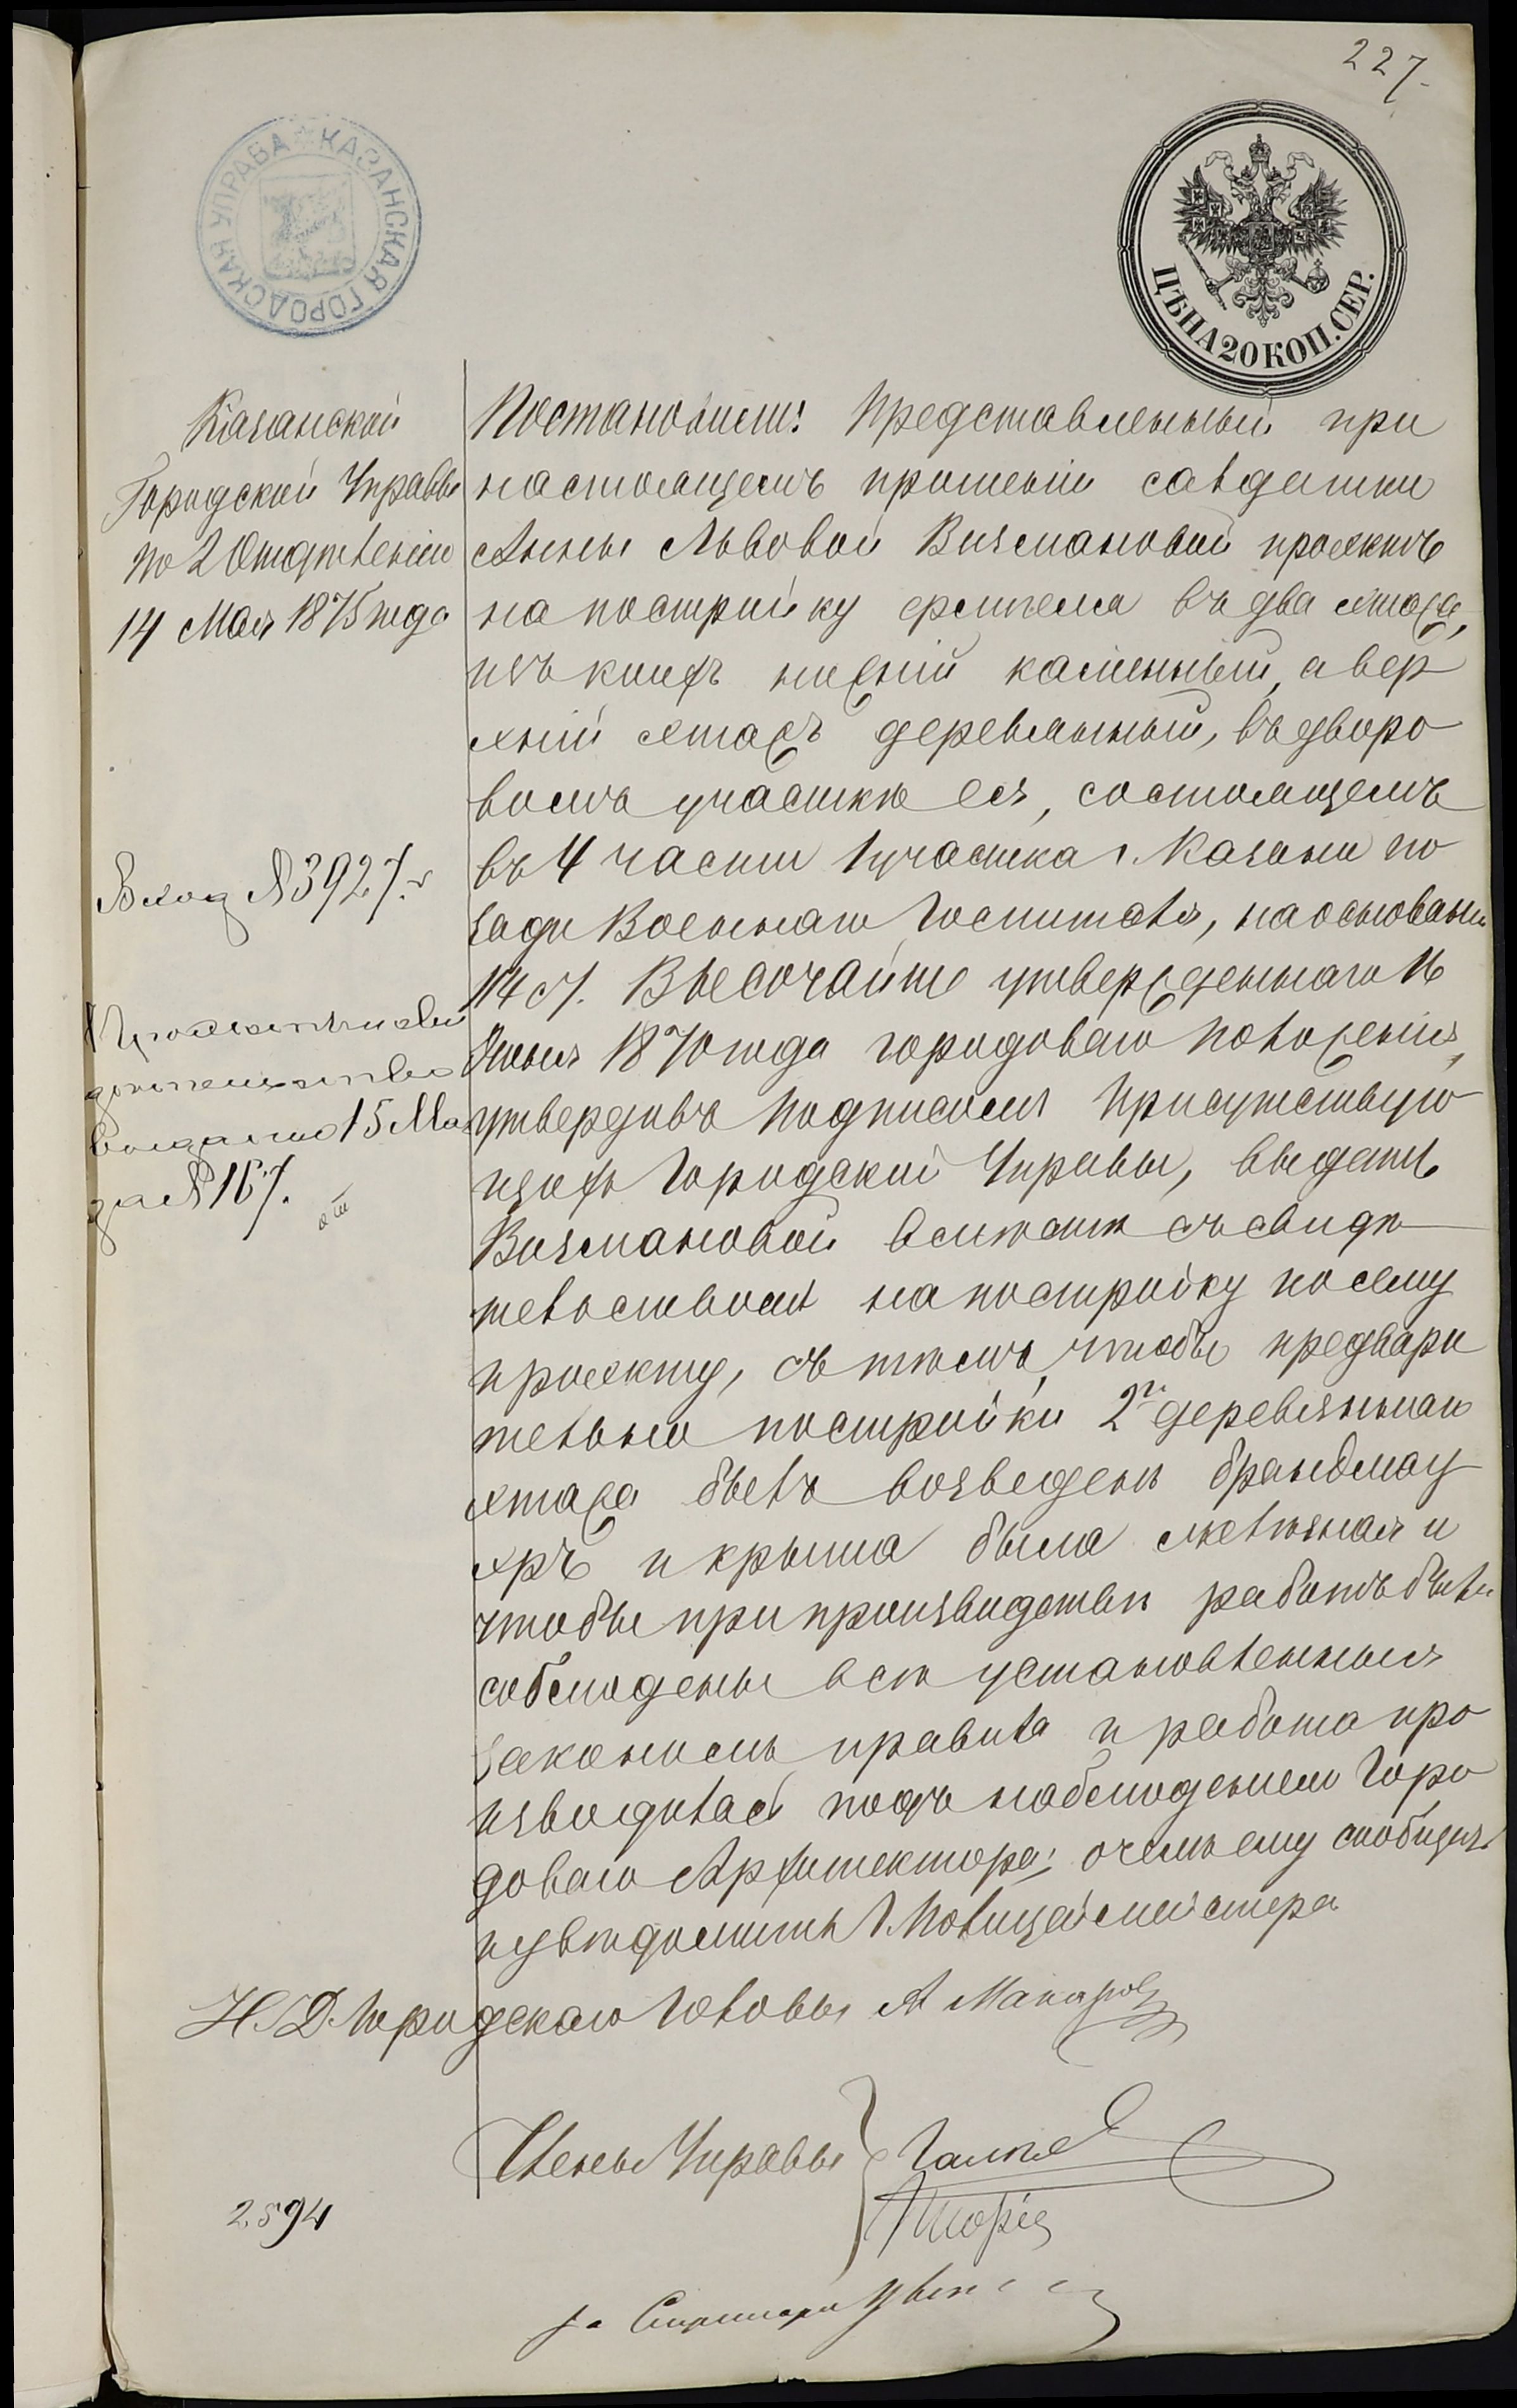 227.
КАЗАНСКАЯ ГОРОДСКАЯ УПРАВА
ЦѢНА 20 КОП. СЕР.
Казанской
Городской Управы
по 2 Отдѣленію
14 Мая 1875 года
Вход № 3927.
Проектъ и сви
дѣтельство
выданы 15 Мая
за № 167.
Постановили: Представленный при
настоящемъ прошеніи солдатки
Анны Львовой Визмановой проэктъ
на постройку флигеля въ два этажа,
изъ коихъ нижній каменный, а вер
хній этажъ деревянный, въ дворо
вомъ участкѣ ея, состоящемъ
въ 4 части 1 участка г. Казани по
зади Военнаго Госпиталя, на основаніи
114 ст. Высочайше утвержденнаго 16
Іюня 1870 года городоваго положенія,
утвердивъ подписомъ присутствую
щихъ Городской Управы, выдать
Визмановой вмѣстѣ съ свидѣ
тельствомъ на постройку по сему
проэкту, съ тѣмъ, чтобы предвари
тельно постройки 2го деревяннаго
этажа былъ возведенъ брандмау
эръ и крыша была желѣзная и
чтобы при производствѣ работъ были
соблюдены всѣ установленныя
закономъ правила и работа про
изводилась подъ наблюденіемъ Горо
доваго Архитектора; о чемъ ему сообщить
и увѣдомить Г. Полицеймейстера
И. Д. Городскаго Головы А Макаров
Члены Управы
За Секретаря
2594